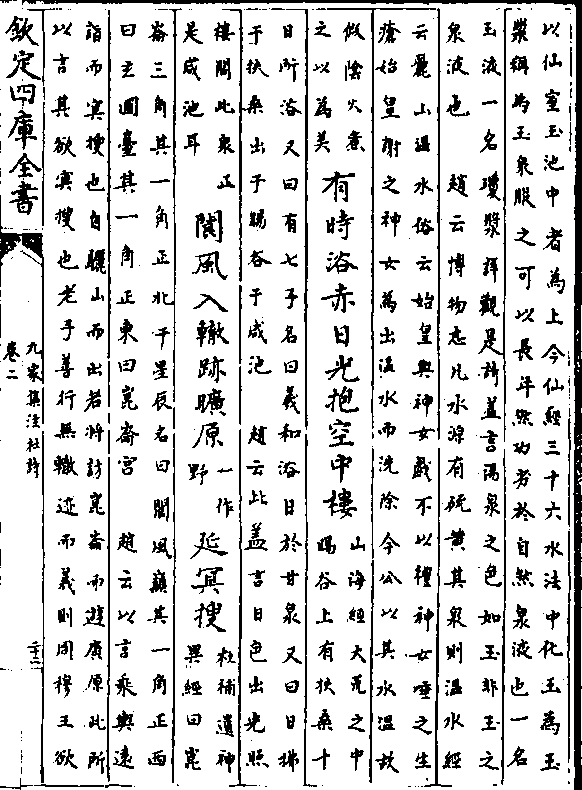 以仙室玉池中者為上今仙經三十六水法中化玉為玉
漿稱為玉泉服之可以長年然功劣於自然泉液也一名
玉液一名瓊漿詳觀是詩蓋言湯泉之色如玉非玉之
泉液也　趙云博物志凡水源有硫黄其泉則温水經
云麗山温水俗云始皇與神女戲不以禮神女唾之生
瘡始皇謝之神女為出温水而洗除今公以其水温故
似陰火煮
之以為美
有時浴赤日光抱空中樓
山海經大荒之中
暘谷上有扶桑十
日所浴又曰有女子名曰羲和浴日於甘泉又曰日拂
于扶桑出于暘谷于咸池　趙云此蓋言日色出光照
樓閣此泉正
是咸池耳
閬風入轍跡曠原
一作
野
延冥搜
杜補遺神
異經曰崑
崙三角其一角正北干星辰名曰閬風巔其一角正西
曰玄圃臺其一角正東曰崑崙宮　趙云以言乘輿遠
詣而冥搜也自驪山而出若將訪崑崙而遊廣原此所
以言其欲冥搜也老子善行無轍迹而義則周穆王欲
欽定四庫全書
九家集注杜詩
卷二
二十二